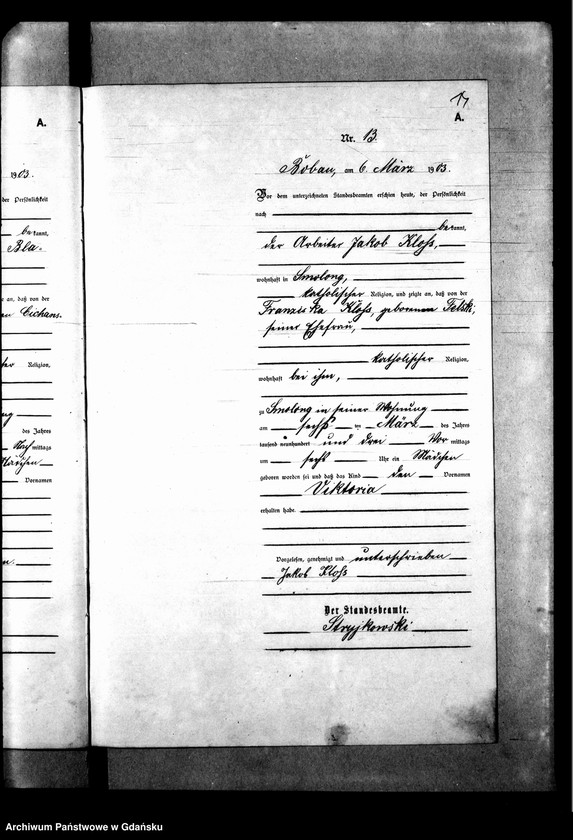 A.
1903.
der Persönlichkeit
bekannt,
Bla-
e an, daß von der
en Cichans.
ter Religion,
ng
des Jahres
Nachmittags
Mädchen
Vornamen
n.
17
A.
Nr. 13.
Bobau, am 6. März 1903.
Vor dem unterzeichneten Standesbeamten erschien heute, der Persönlichkeit
nach
bekannt,
der Arbeiter Jakob Kloß,
wohnhaft in Smolong,
katholischer Religion, und zeigte an, daß von der
Franziska Kloß, geborenen Felski,
seiner Ehefrau,
katholischer Religion,
wohnhaft bei ihm,
zu Smolong in seiner Wohnung
am sechsten März des Jahres
tausend neunhundert und drei Vormittags
um sechs Uhr ein Mädchen
geboren worden sei und daß das Kind den Vornamen
Viktoria
erhalten habe.
Vorgelesen, genehmigt und unterschrieben
Jakob Kloß
Der Standesbeamte.
Stryjkowski
Archiwum Państwowe w Gdańsku